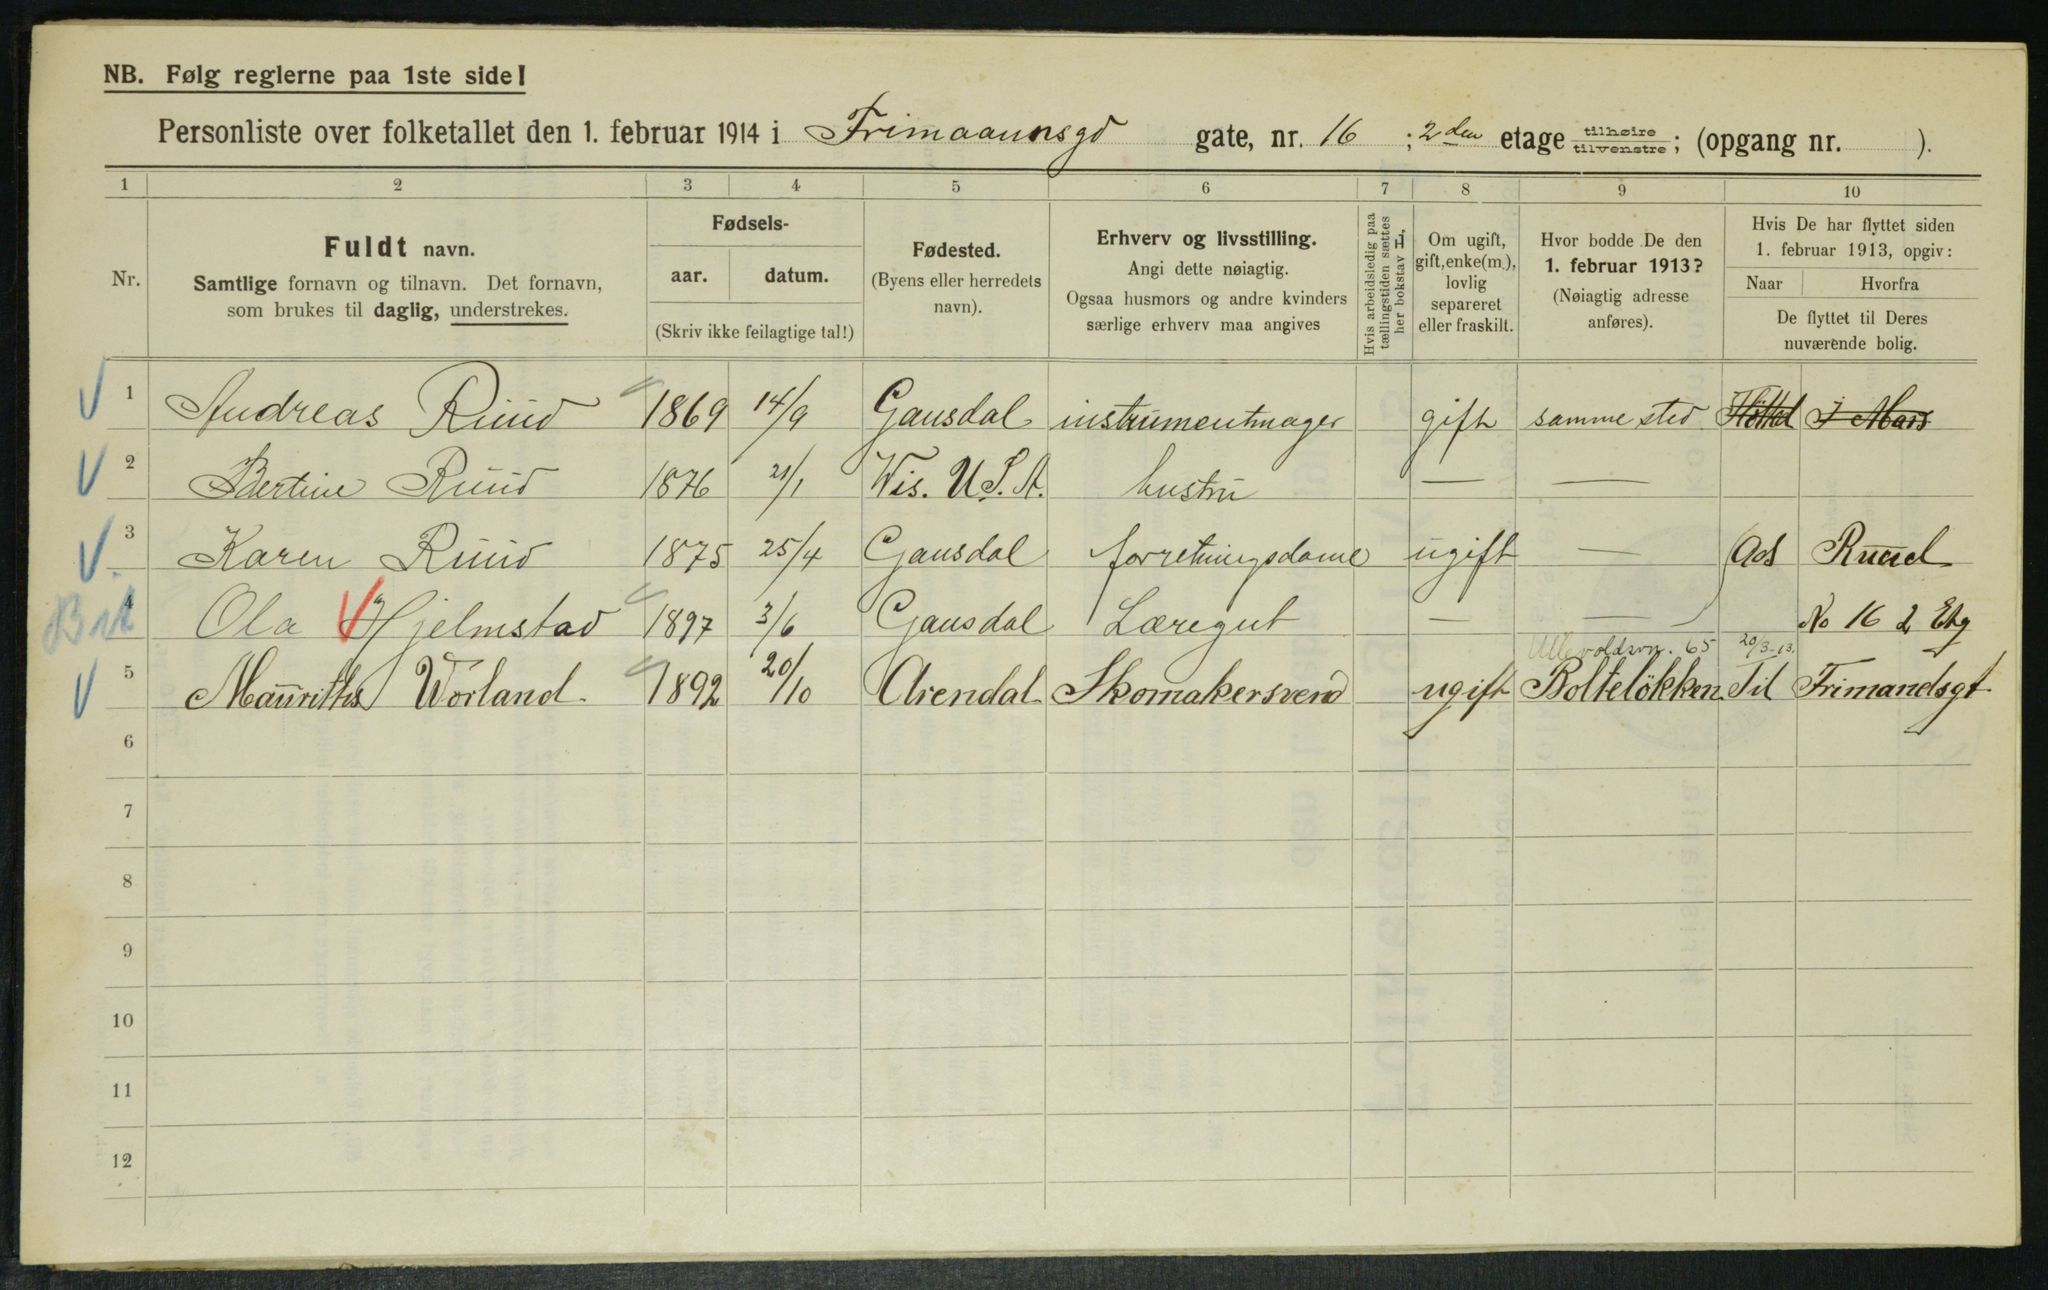 NB. Følg reglerne paa 1ste side!
Personliste over folketallet den 1. februar 1914 i Frimaannsgd gate, nr. 16 ; 2den etage tilhøire tilvenstre; (opgang nr. ).
1 2 3 4 5 6 7 8 9 10
Nr.
Fuldt navn.
Samtlige fornavn og tilnavn. Det fornavn,
som brukes til daglig, understrekes.
Fødsels-
aar. datum.
(Skriv ikke feilagtige tal!)
Fødested.
(Byens eller herredets
navn).
Erhverv og livsstilling.
Angi dette nøiagtig.
Ogsaa husmors og andre kvinders
særlige erhverv maa angives
Hvis arbeidsledig paa
tællingstiden sættes
her bokstav H.
Om ugift,
gift, enke(m.),
lovlig
separeret
eller fraskilt.
Hvor bodde De den
1. februar 1913?
(Nøiagtig adresse
anføres).
Hvis De har flyttet siden
1. februar 1913, opgiv:
Naar Hvorfra
De flyttet til Deres
nuværende bolig.
1 Andreas Ruud 1869 14/9 Gausdal instrumentmager gift samme sted I Mars
2 Bertine Ruud 1876 21/1 Wis. U.S.A. hustru — —
3 Karen Ruud 1875 25/4 Gausdal forretningsdame ugift — Ruud
4 Ola Hjelmstad 1897 3/6 Gausdal Læregut — — No 16 2 Etg
Ullevoldsvn. 65 20/3-13.
5 Mauritths Worland 1892 20/10 Arendal Skomakersvend ugift Bolteløkken Til Frimandsgt
6
7
8
9
10
11
12